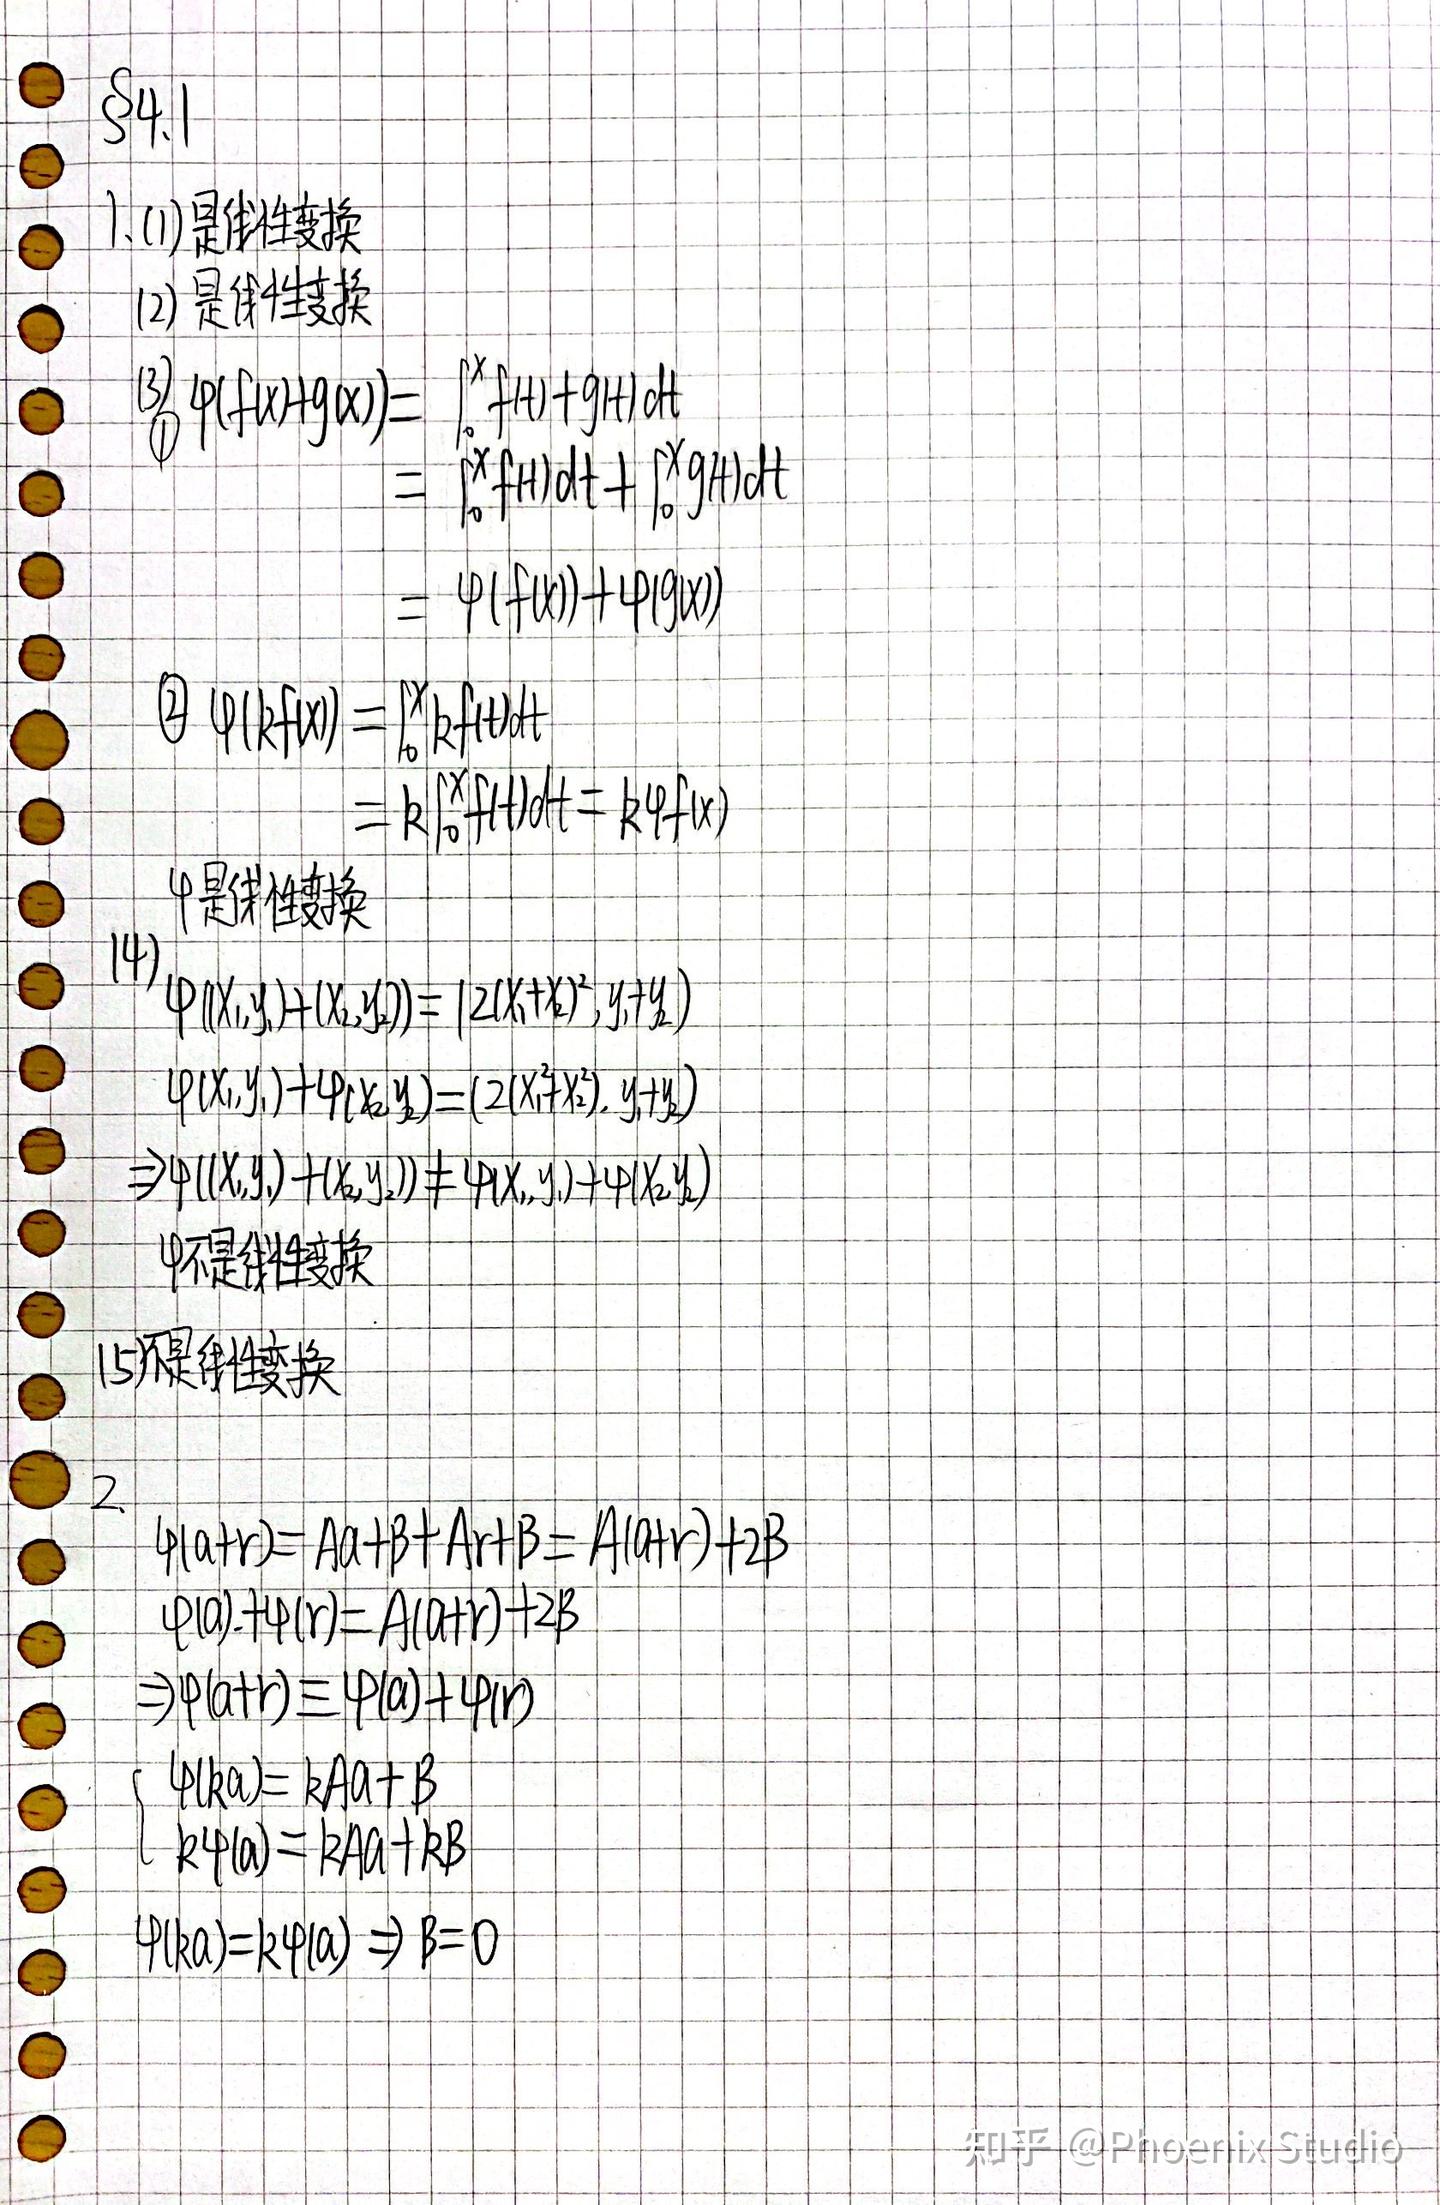 §4.1
1.(1)是线性变换
(2)是线性变换
(3)
① φ(f(x)+g(x))= ∫₀ˣ f(t)+g(t)dt
= ∫₀ˣ f(t)dt+∫₀ˣ g(t)dt
= φ(f(x))+φ(g(x))
② φ(kf(x))=∫₀ˣ kf(t)dt
=k∫₀ˣ f(t)dt=kφf(x)
φ是线性变换
(4)
φ((x₁,y₁)+(x₂,y₂))=(2(x₁+x₂)²,y₁+y₂)
φ(x₁,y₁)+φ(x₂,y₂)=(2(x₁²+x₂²),y₁+y₂)
⇒φ((x₁,y₁)+(x₂,y₂))≠φ(x₁,y₁)+φ(x₂,y₂)
φ不是线性变换
(5)不是线性变换
2.
φ(a+r)=Aa+β+Ar+β=A(a+r)+2β
φ(a)+φ(r)=A(a+r)+2β
⇒φ(a+r)≡φ(a)+φ(r)
{ φ(ka)=kAa+β
kφ(a)=kAa+kβ
φ(ka)=kφ(a)⇒β=0
知乎 @Phoenix Studio